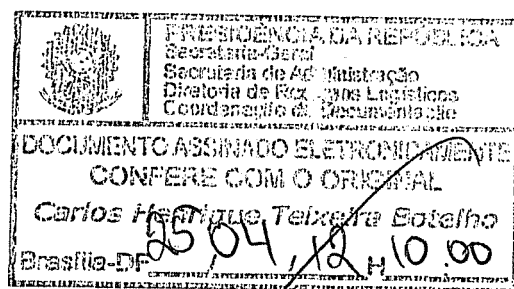 PRESIDÊNCIA DA REPÚBLICA
Secretaria-Geral
Secretaria de Administração
Diretoria de Recursos Logísticos
Coordenação de Documentação
DOCUMENTO ASSINADO ELETRONICAMENTE
CONFERE COM O ORIGINAL
Carlos Henrique Teixeira Botelho
Brasília-DF 25/04/12 H 10:00